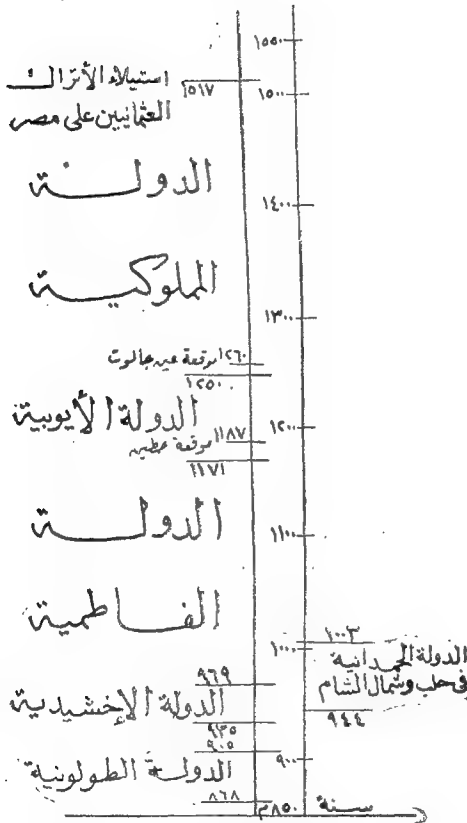 ١٥٥٠
استيلاء الأتراك
١٥١٧
١٥٠٠
العثمانيين على مصر
الدولة
١٤٠٠
المملوكية
١٣٠٠
١٢٦٠ موقعة عين جالوت
١٢٥٠
الدولة الأيوبية
١٢٠٠
١١٨٧ موقعة حطين
١١٧١
الدولة
١١٠٠
الفاطمية
١٠٠٣
١٠٠٠
الدولة الحمدانية
في حلب وشمال الشام
٩٤٤
٩٦٩
الدولة الإخشيدية
٩٣٥
٩٠٥
٩٠٠
الدولة الطولونية
٨٦٨
٨٥٠م
سنة